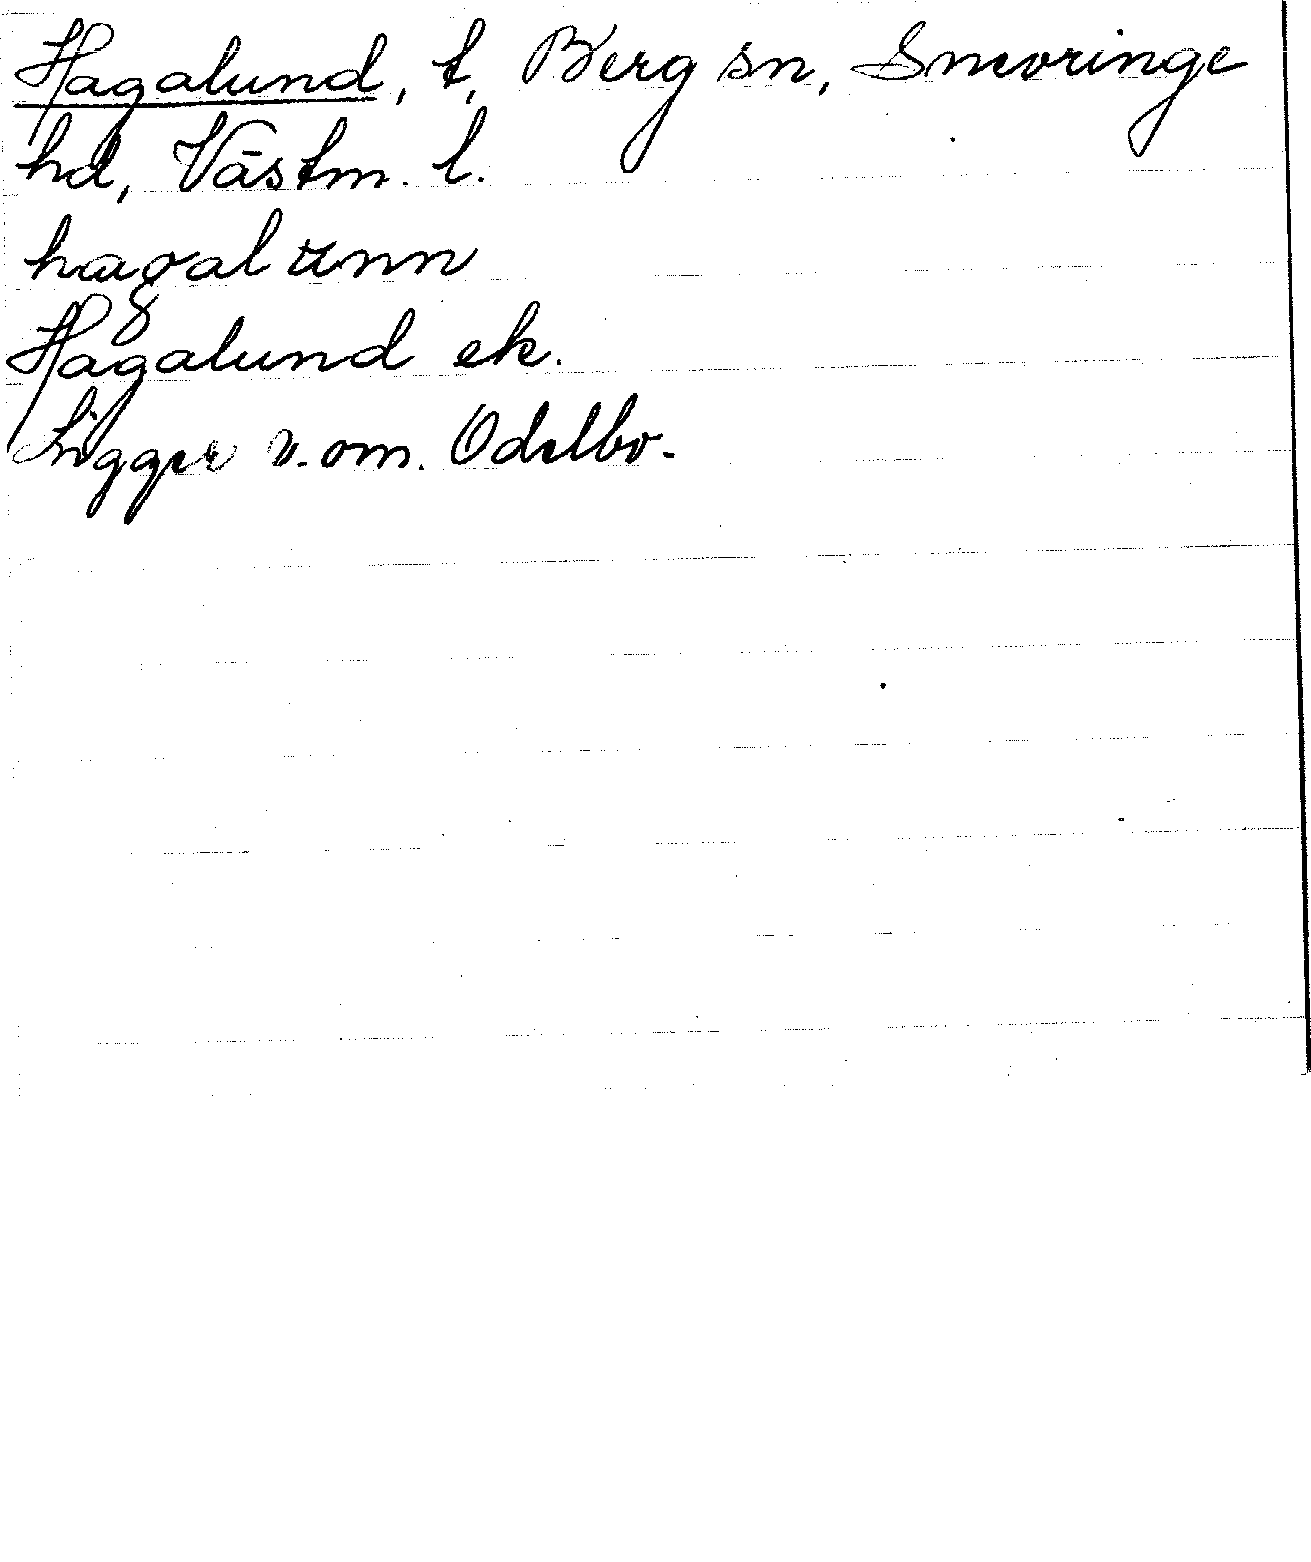 Hagalund, t, Berg sn, Snevringe
hd, Västm. l.
hagalunn
Hagalund ek.
Ligger v. om. Odelbo.